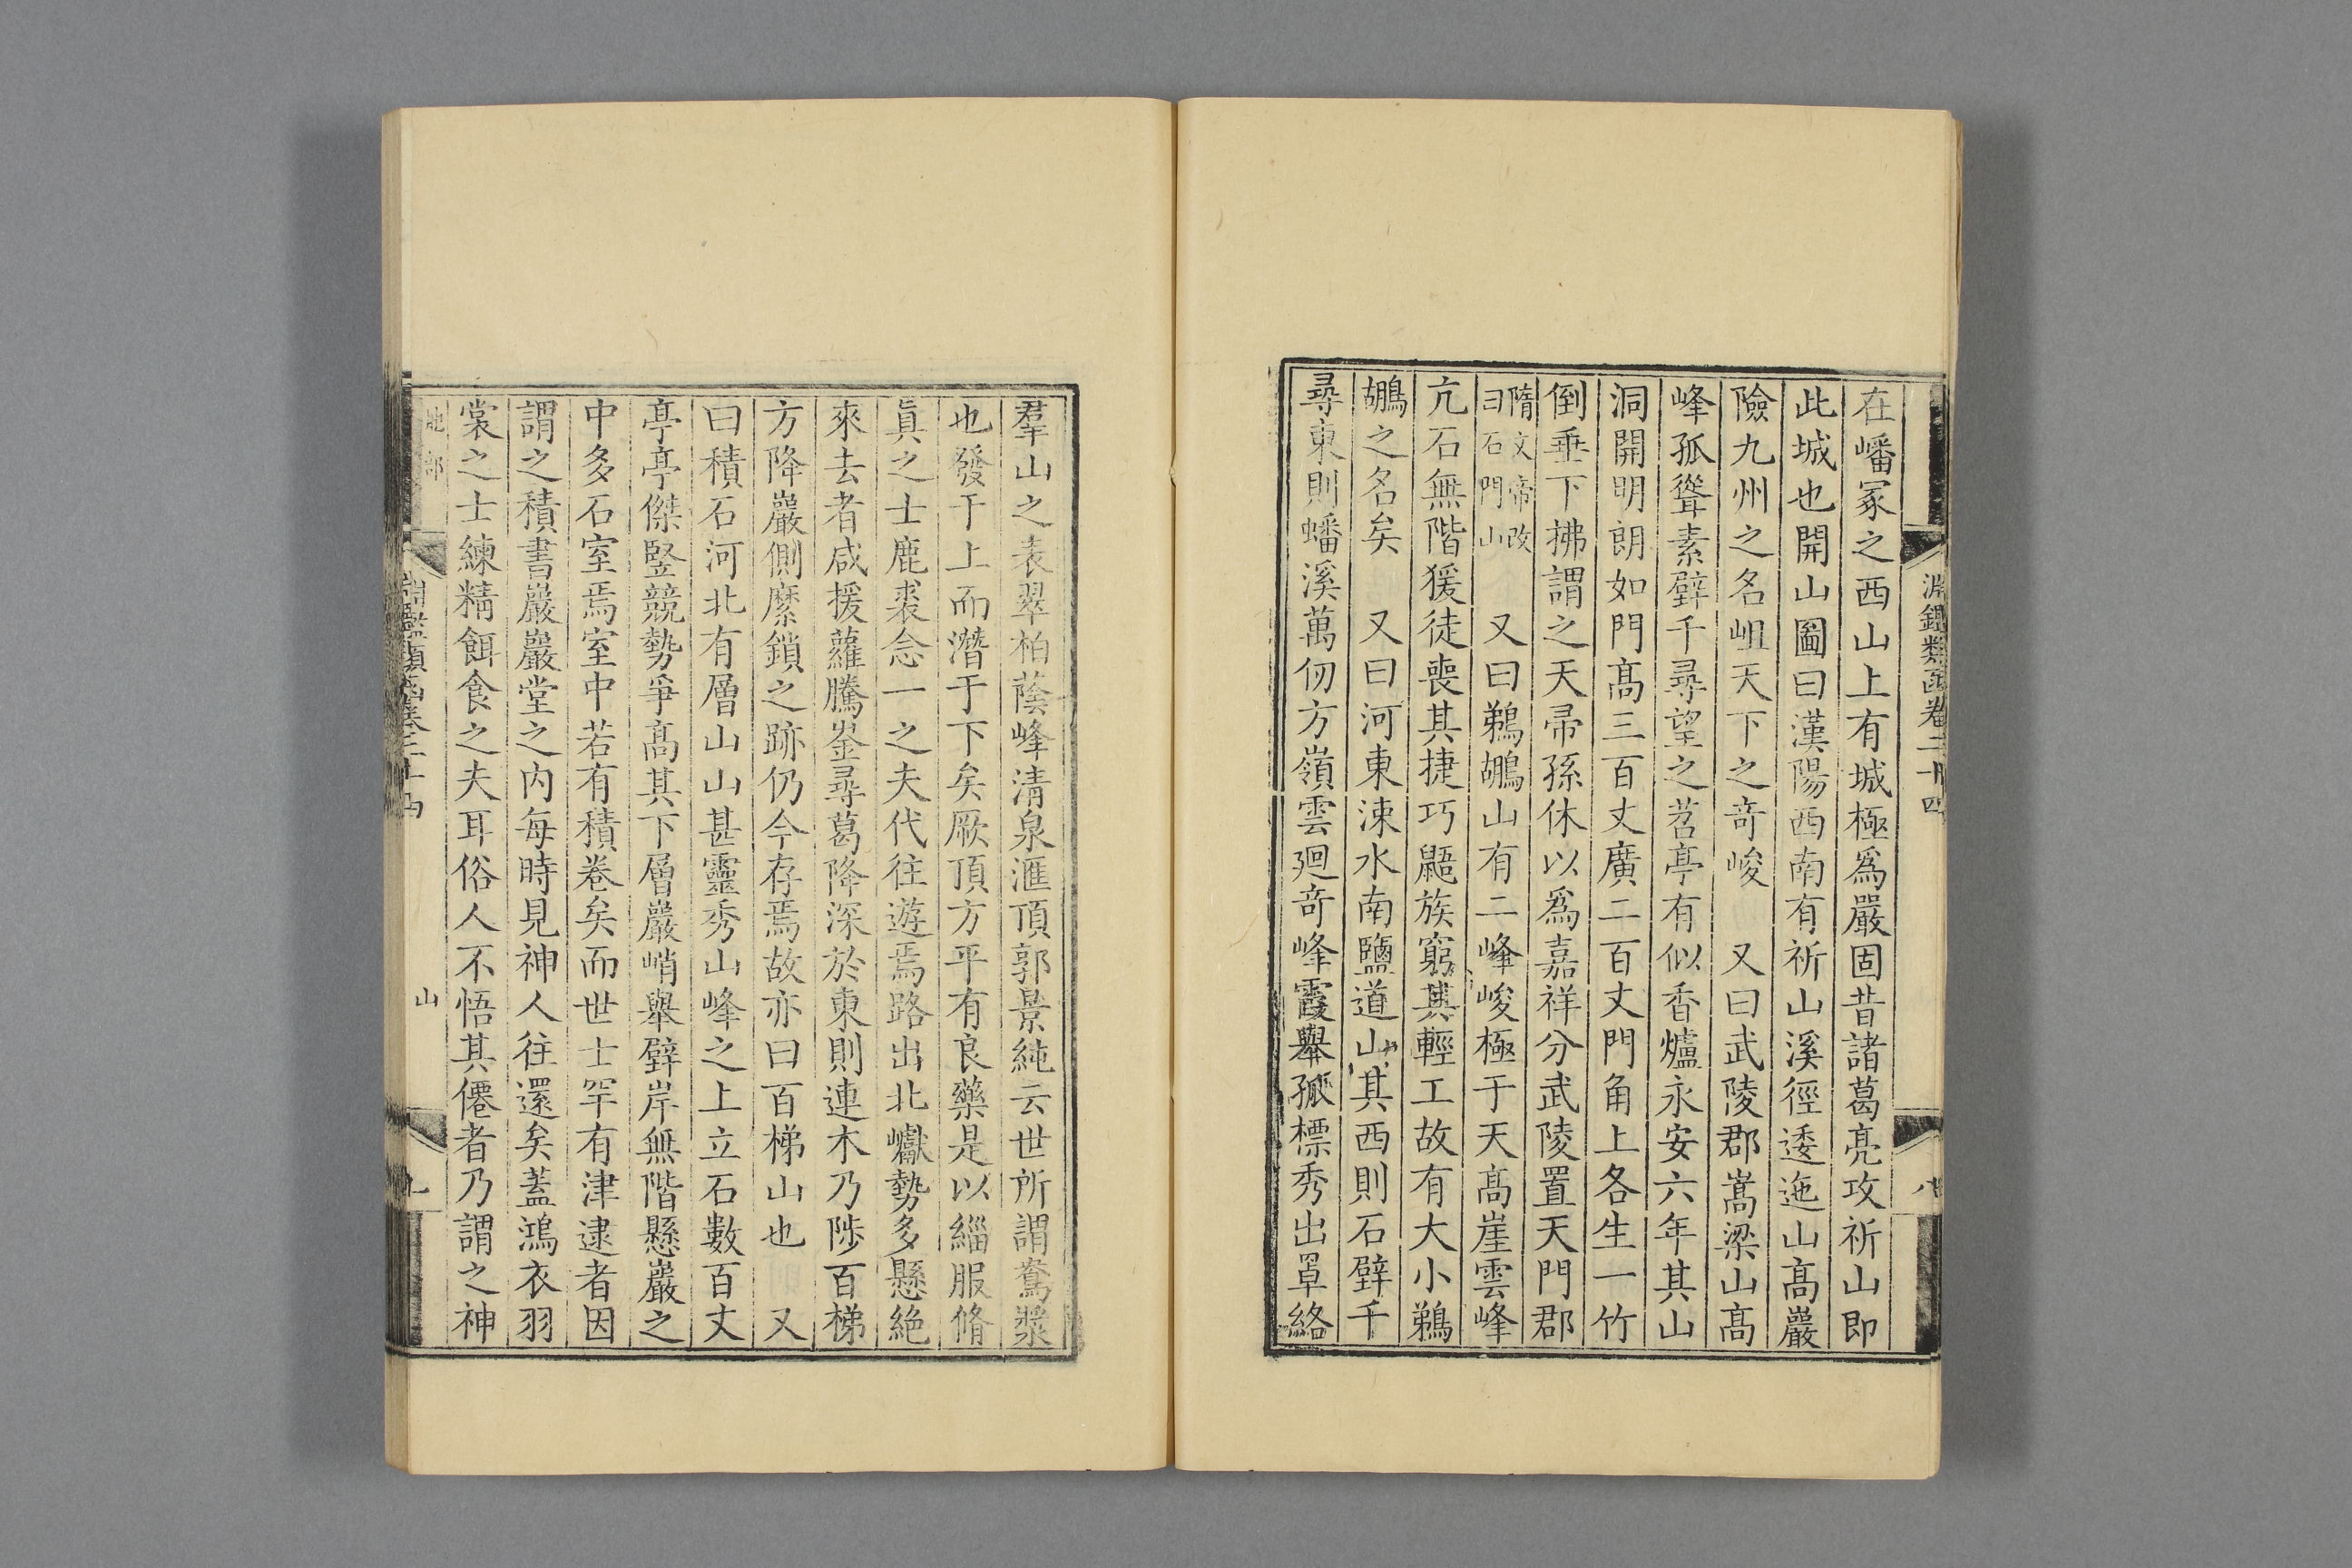 淵鑑類函卷二十四
八
在嶓冢之西山上有城極爲嚴固昔諸葛亮攻祈山即
此城也開山圖曰漢陽西南有祈山溪徑逶迤山高巖
險九州之名岨天下之奇峻　又曰武陵郡嵩梁山高
峰孤聳素壁千尋望之苕亭有似香爐永安六年其山
洞開明朗如門高三百丈廣二百丈門角上各生一竹
倒垂下拂謂之天帚孫休以爲嘉祥分武陵置天門郡
隋文帝改
曰石門山
又曰鵜鶘山有二峰峻極于天高崖雲峰
亢石無階猨徒喪其捷巧鼯族窮其輕工故有大小鵜
鶘之名矣　又曰河東涑水南鹽道山其西則石壁千
尋東則蟠溪萬仞方嶺雲廻奇峰霞舉孤標秀出罩絡
羣山之表翠柏蔭峰清泉滙頂郭景純云世所謂鴦漿
也發于上而潛于下矣厥頂方平有良藥是以緇服脩
眞之士鹿裘念一之夫代往遊焉路出北巘勢多懸絶
來去者咸援蘿騰崟尋葛降深於東則連木乃陟百梯
方降巖側縻鎖之跡仍今存焉故亦曰百梯山也　又
曰積石河北有層山山甚靈秀山峰之上立石數百丈
亭亭傑竪競勢爭高其下層巖峭舉壁岸無階懸巖之
中多石室焉室中若有積卷矣而世士罕有津逮者因
謂之積書巖巖堂之内每時見神人往還矣蓋鴻衣羽
裳之士練精餌食之夫耳俗人不悟其僊者乃謂之神
地部
淵鑑類函卷二十四
山
九